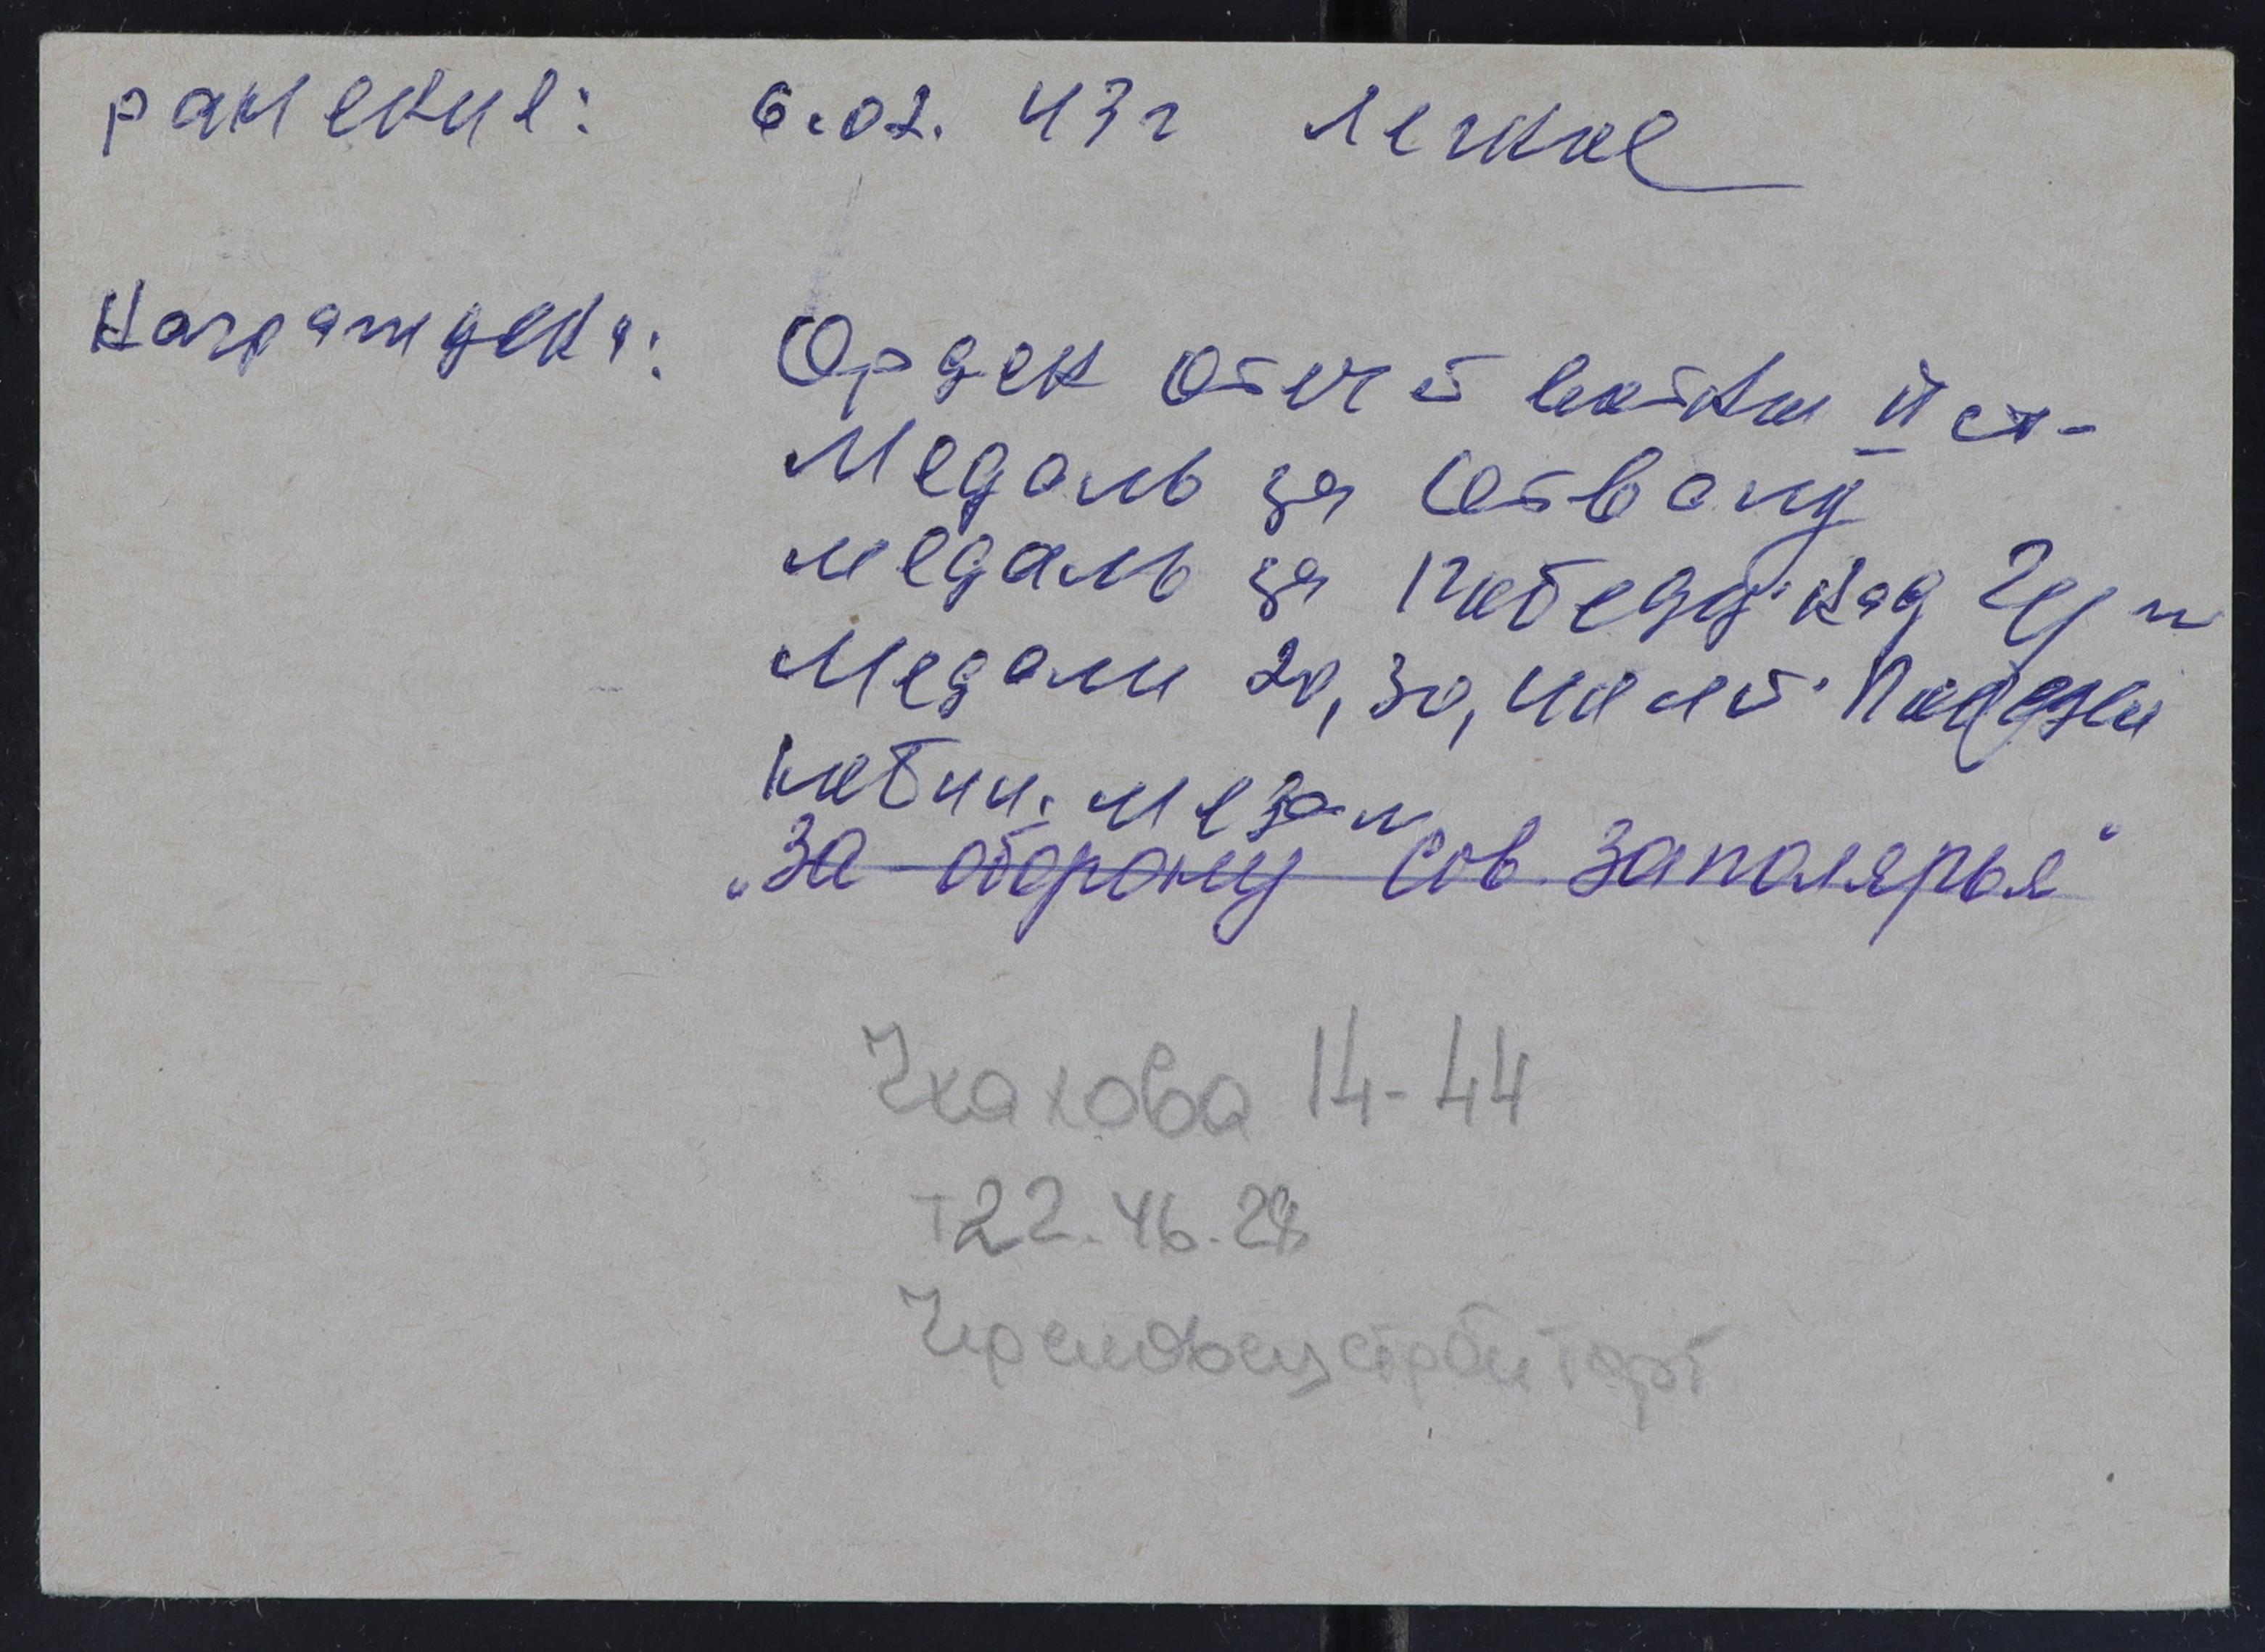 ранение: 6.02.43г легкое
Награждена: Орден Отеч войны II ст.
Медаль за Отвагу
медаль за Победу над Гер
Медали 20, 30, 40 лет Победы
юбил. медал
„За оборону Сов. Заполярья"
Чкалова 14-44
т 22.46.28
Череповецстройторг